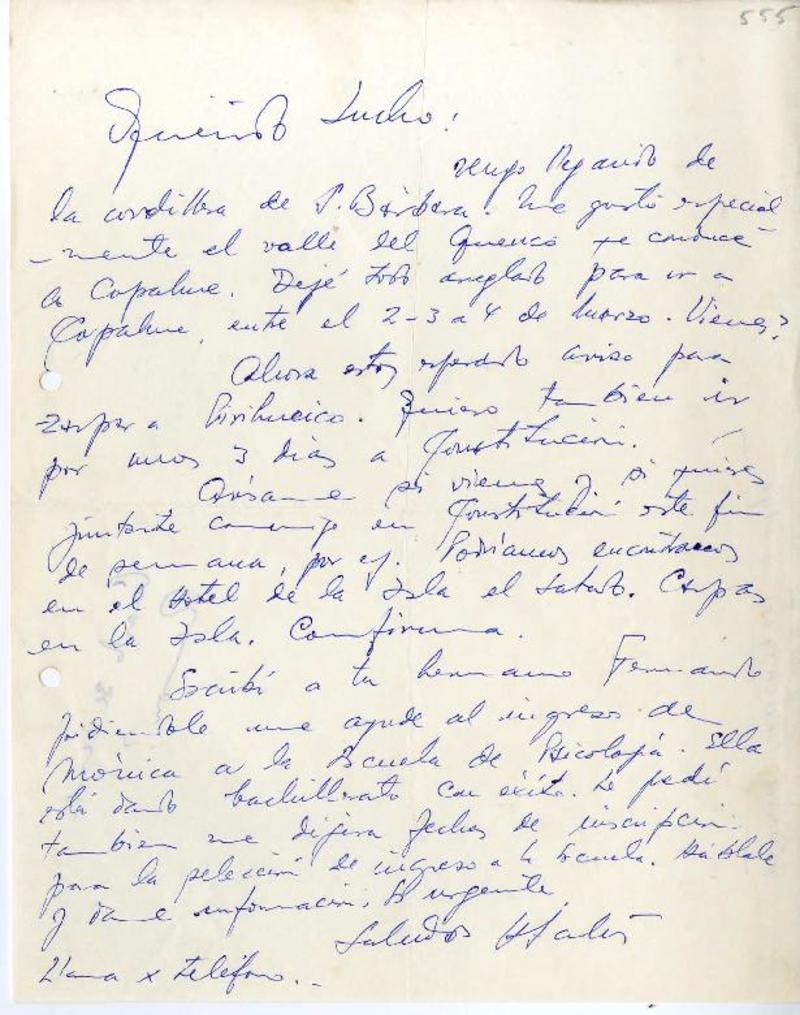 555
Querido Lucho:
Vengo llegando de
la cordillera de S. Bárbara. Me gustó especial
-mente el valle del Queuco q e conduce
a Copahue. Dejé todo arreglado para ir a
Copahue, entre el 2-3 a 4 de Marzo. Vienes?
Ahora estoy esperando aviso para
zarpar a Pirihueico. Quiero también ir
por unos 3 días a Constitución.
Avísame si vienes y si quieres
juntarte conmigo en Constitución este fin
de semana, por ej. Podríamos encontrarnos
en el Hotel de la Isla el Sábado. Carpas
en la Isla. Confirma.
Escribí a tu hermano Fernando
pidiendole me ayude al ingreso de
Mónica a la Escuela de Psicología. Ella
está dando bachillerato con éxito. Le pedí
tambien me dijera fechas de inscripción
para la selección de ingreso a la Escuela. Háblale
y dame información. Es urgente
Saludos
Llama x teléfono...